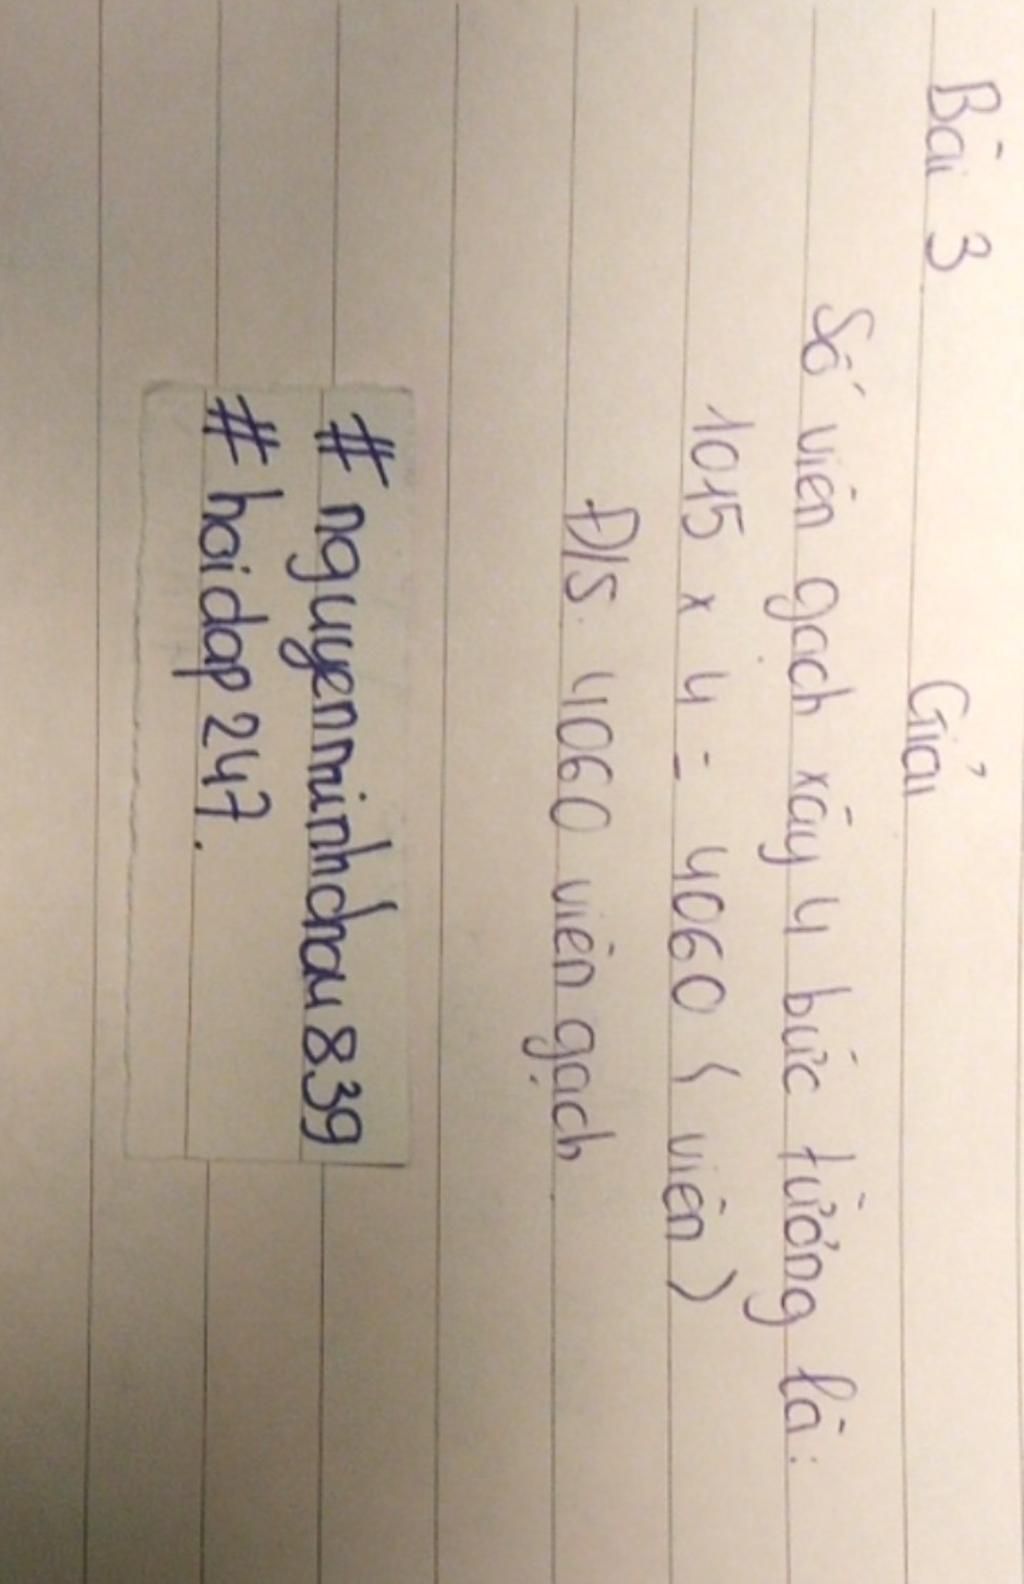 Bài 3
Giải
Số viên gạch xây 4 bức tường là:
1015 x 4 = 4060 ( viên )
Đ/S: 4060 viên gạch
# nguyenminhchau839
# hoidap247.